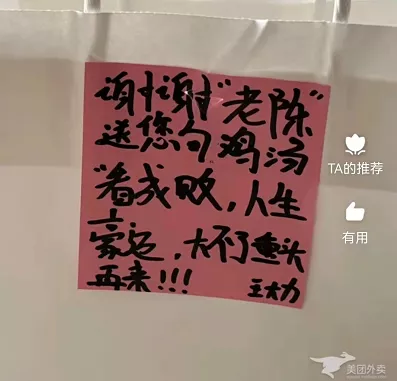 谢谢"老陈"
送您句鸡汤
"看成败,人生
豪迈,大不了重头
再来!!! 王大力
TA的推荐
有用
美团外卖